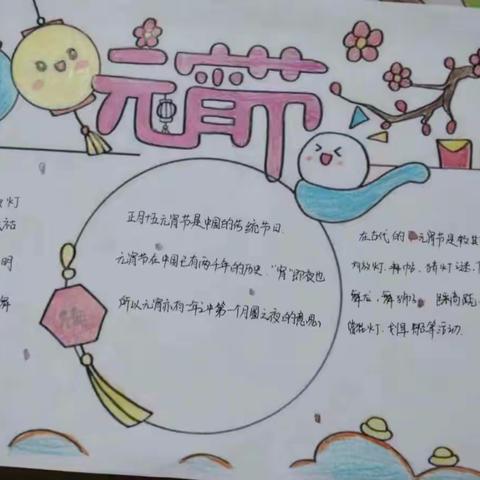 元宵节
灯
明
舞
正月十五元宵节是中国的传统节日.
元宵节在中国已有两千年的历史,"宵"即夜也
所以元宵亦有一年之中第一个月圆之夜的意思,
在古代的元宵节是较其
灯,舞狮,猜灯谜,
舞龙,舞狮子,踩高跷,
灯,划旱船等活动.